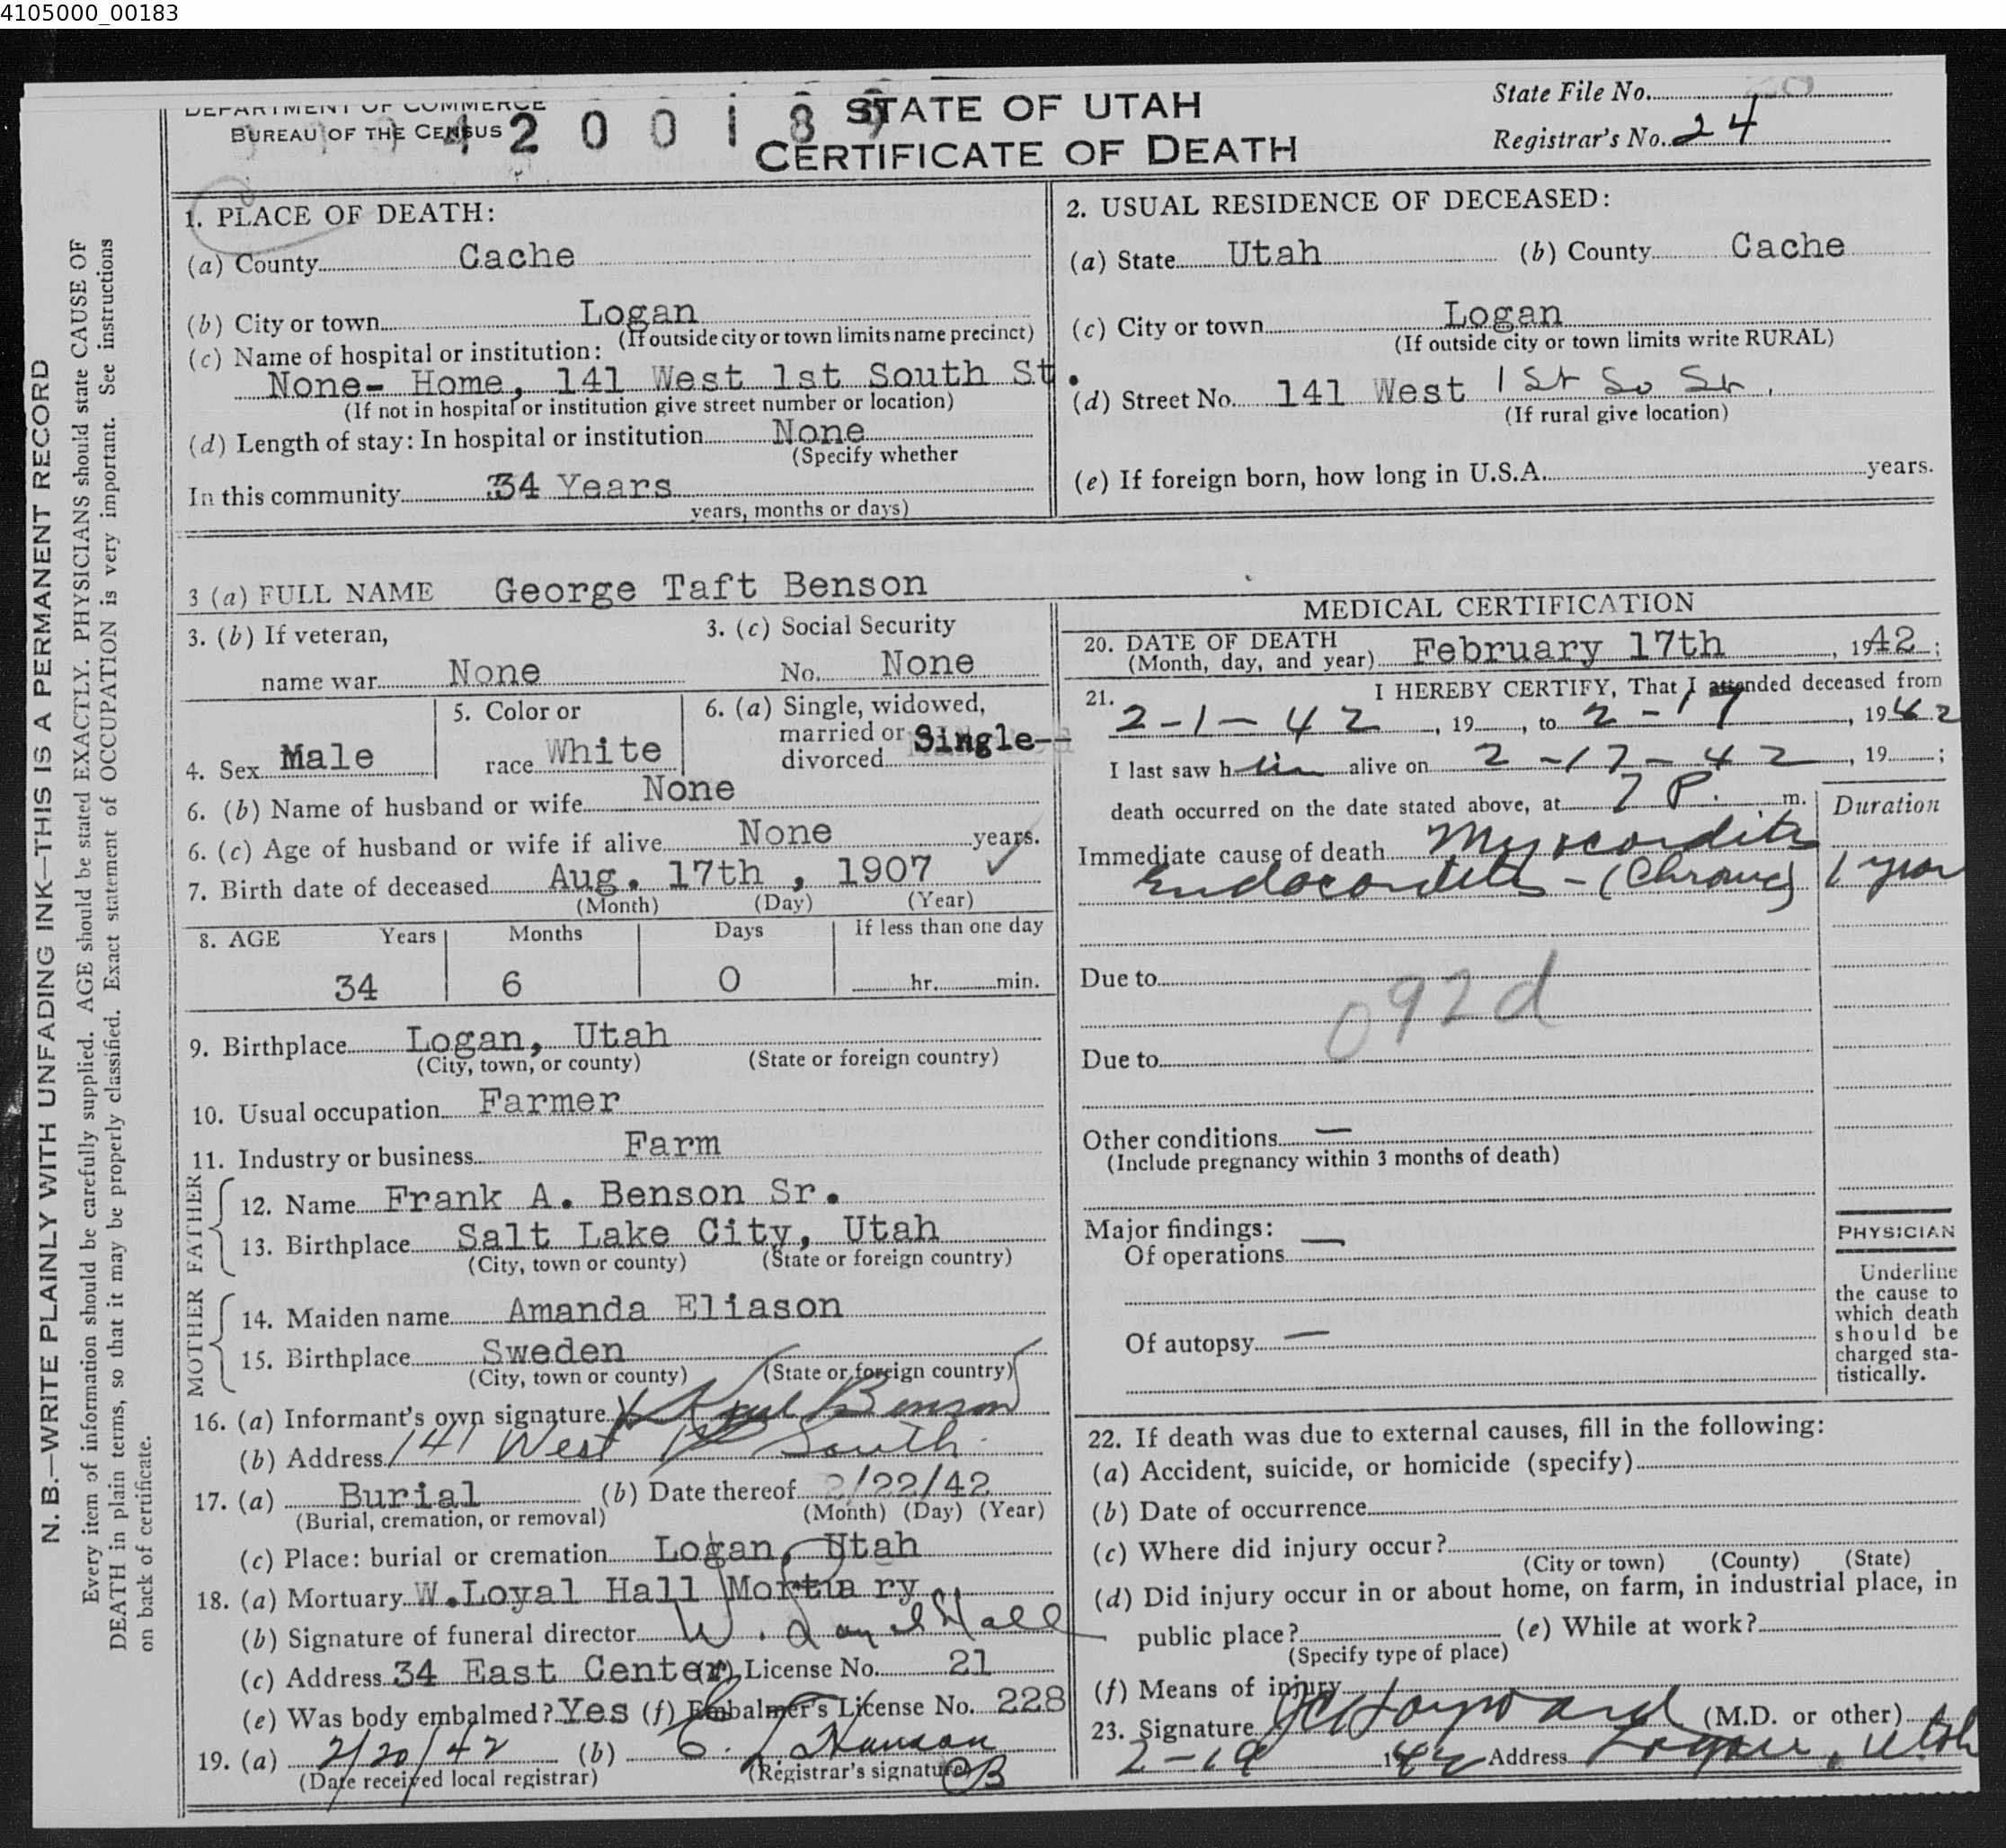 4105000_00183
DEPARTMENT OF COMMERCE
BUREAU OF THE CENSUS
4200189
STATE OF UTAH
CERTIFICATE OF DEATH
State File No.
Registrar's No. 24
1. PLACE OF DEATH:
(a) County Cache
(b) City or town Logan
(If outside city or town limits name precinct)
(c) Name of hospital or institution:
None- Home, 141 West 1st South St.
(If not in hospital or institution give street number or location)
(d) Length of stay: In hospital or institution None
(Specify whether
In this community 34 Years
years, months or days)
2. USUAL RESIDENCE OF DECEASED:
(a) State Utah (b) County Cache
(c) City or town Logan
(If outside city or town limits write RURAL)
(d) Street No. 141 West 1 St So St.
(If rural give location)
(e) If foreign born, how long in U.S.A. years.
3 (a) FULL NAME George Taft Benson
3. (b) If veteran, 3. (c) Social Security
name war None No. None
4. Sex Male
5. Color or
race White
6. (a) Single, widowed,
married or
divorced Single--
6. (b) Name of husband or wife None
6. (c) Age of husband or wife if alive None years.
7. Birth date of deceased Aug. 17th, 1907
(Month) (Day) (Year)
8. AGE Years Months Days If less than one day
34 6 0 hr. min.
9. Birthplace Logan, Utah
(City, town, or county) (State or foreign country)
10. Usual occupation Farmer
11. Industry or business Farm
FATHER
12. Name Frank A. Benson Sr.
13. Birthplace Salt Lake City, Utah
(City, town or county) (State or foreign country)
MOTHER
14. Maiden name Amanda Eliason
15. Birthplace Sweden
(City, town or county) (State or foreign country)
16. (a) Informant's own signature Benson
(b) Address 141 West 1st South
17. (a) Burial (b) Date thereof 2/22/42
(Burial, cremation, or removal) (Month) (Day) (Year)
(c) Place: burial or cremation Logan, Utah
18. (a) Mortuary W.Loyal Hall Mortua ry
(b) Signature of funeral director W. Loyal Hall
(c) Address 34 East Center License No. 21
(e) Was body embalmed? Yes (f) Embalmer's License No. 228
19. (a) 2/20/42 (b)
(Date received local registrar) (Registrar's signature)
MEDICAL CERTIFICATION
20. DATE OF DEATH
(Month, day, and year) February 17th, 1942;
21. I HEREBY CERTIFY, That I attended deceased from
2-1-42, 19, to 2-17, 1942
I last saw h im alive on 2-17-42, 19 ;
death occurred on the date stated above, at 7 P. m.
Duration
Immediate cause of death Myocarditis
Endocarditis - (Chronic) 1 year
Due to
092d
Due to
Other conditions —
(Include pregnancy within 3 months of death)
Major findings:
Of operations —
Of autopsy —
PHYSICIAN
Underline
the cause to
which death
should be
charged sta-
tistically.
22. If death was due to external causes, fill in the following:
(a) Accident, suicide, or homicide (specify)
(b) Date of occurrence
(c) Where did injury occur?
(City or town) (County) (State)
(d) Did injury occur in or about home, on farm, in industrial place, in
public place? (e) While at work?
(Specify type of place)
(f) Means of injury
23. Signature Hayward (M.D. or other)
2-19 1942 Address Logan, Utah
N. B.—WRITE PLAINLY WITH UNFADING INK—THIS IS A PERMANENT RECORD
Every item of information should be carefully supplied. AGE should be stated EXACTLY. PHYSICIANS should state CAUSE OF
DEATH in plain terms, so that it may be properly classified. Exact statement of OCCUPATION is very important. See instructions
on back of certificate.